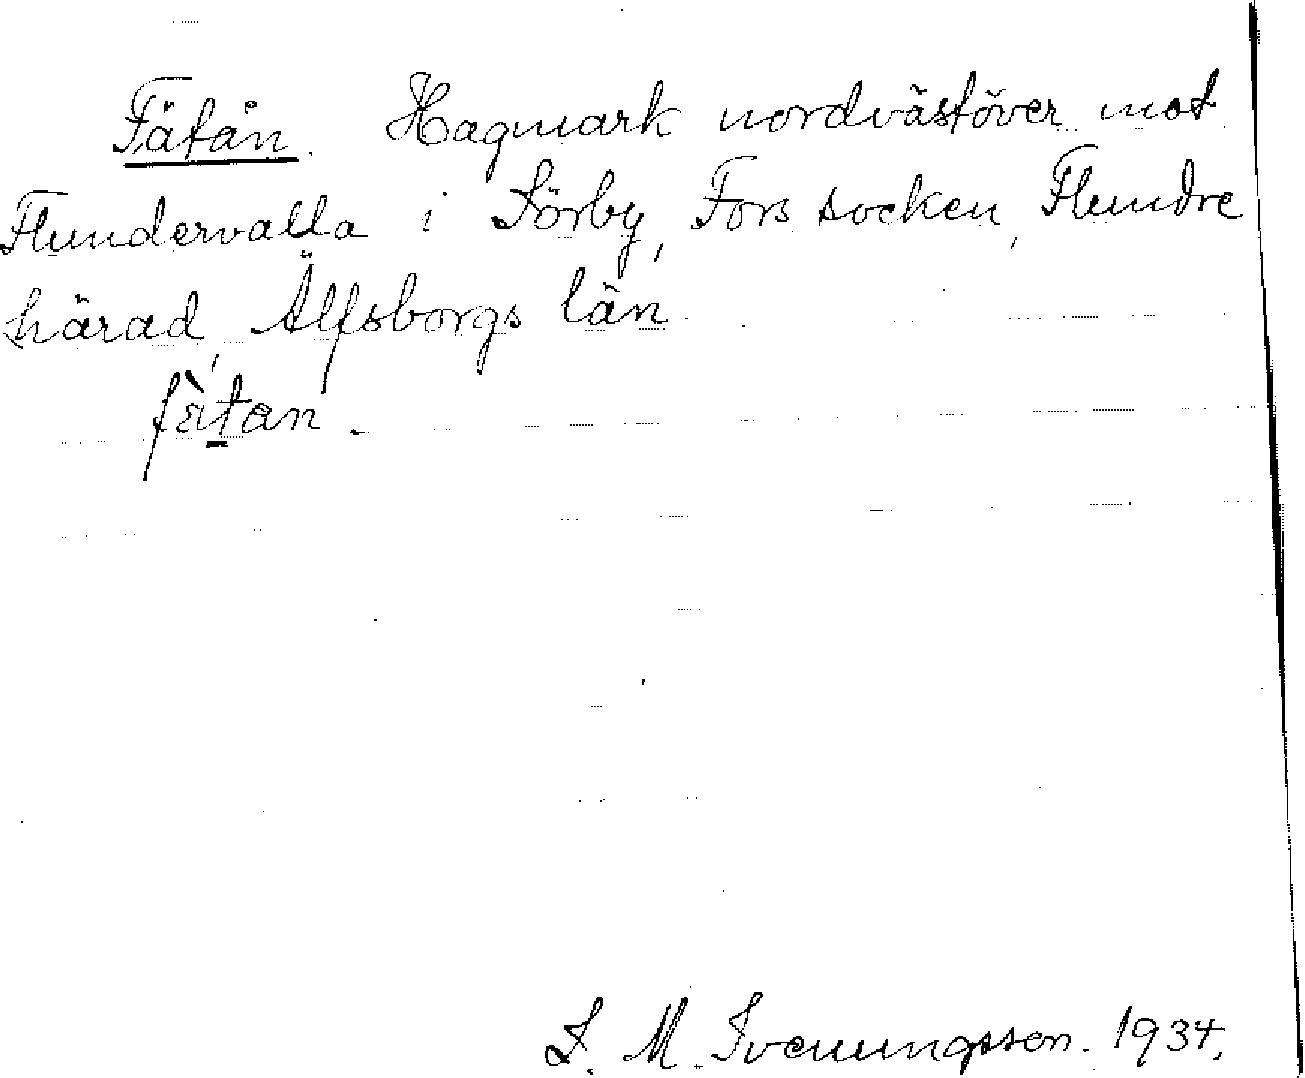 Fätån. Hagmark nordvästöver mot
Flundervalla i Sörby, Fors socken, Flundre
härad, Älfsborgs län.
fà̈tan.
S. M. Svenungsson. 1934.